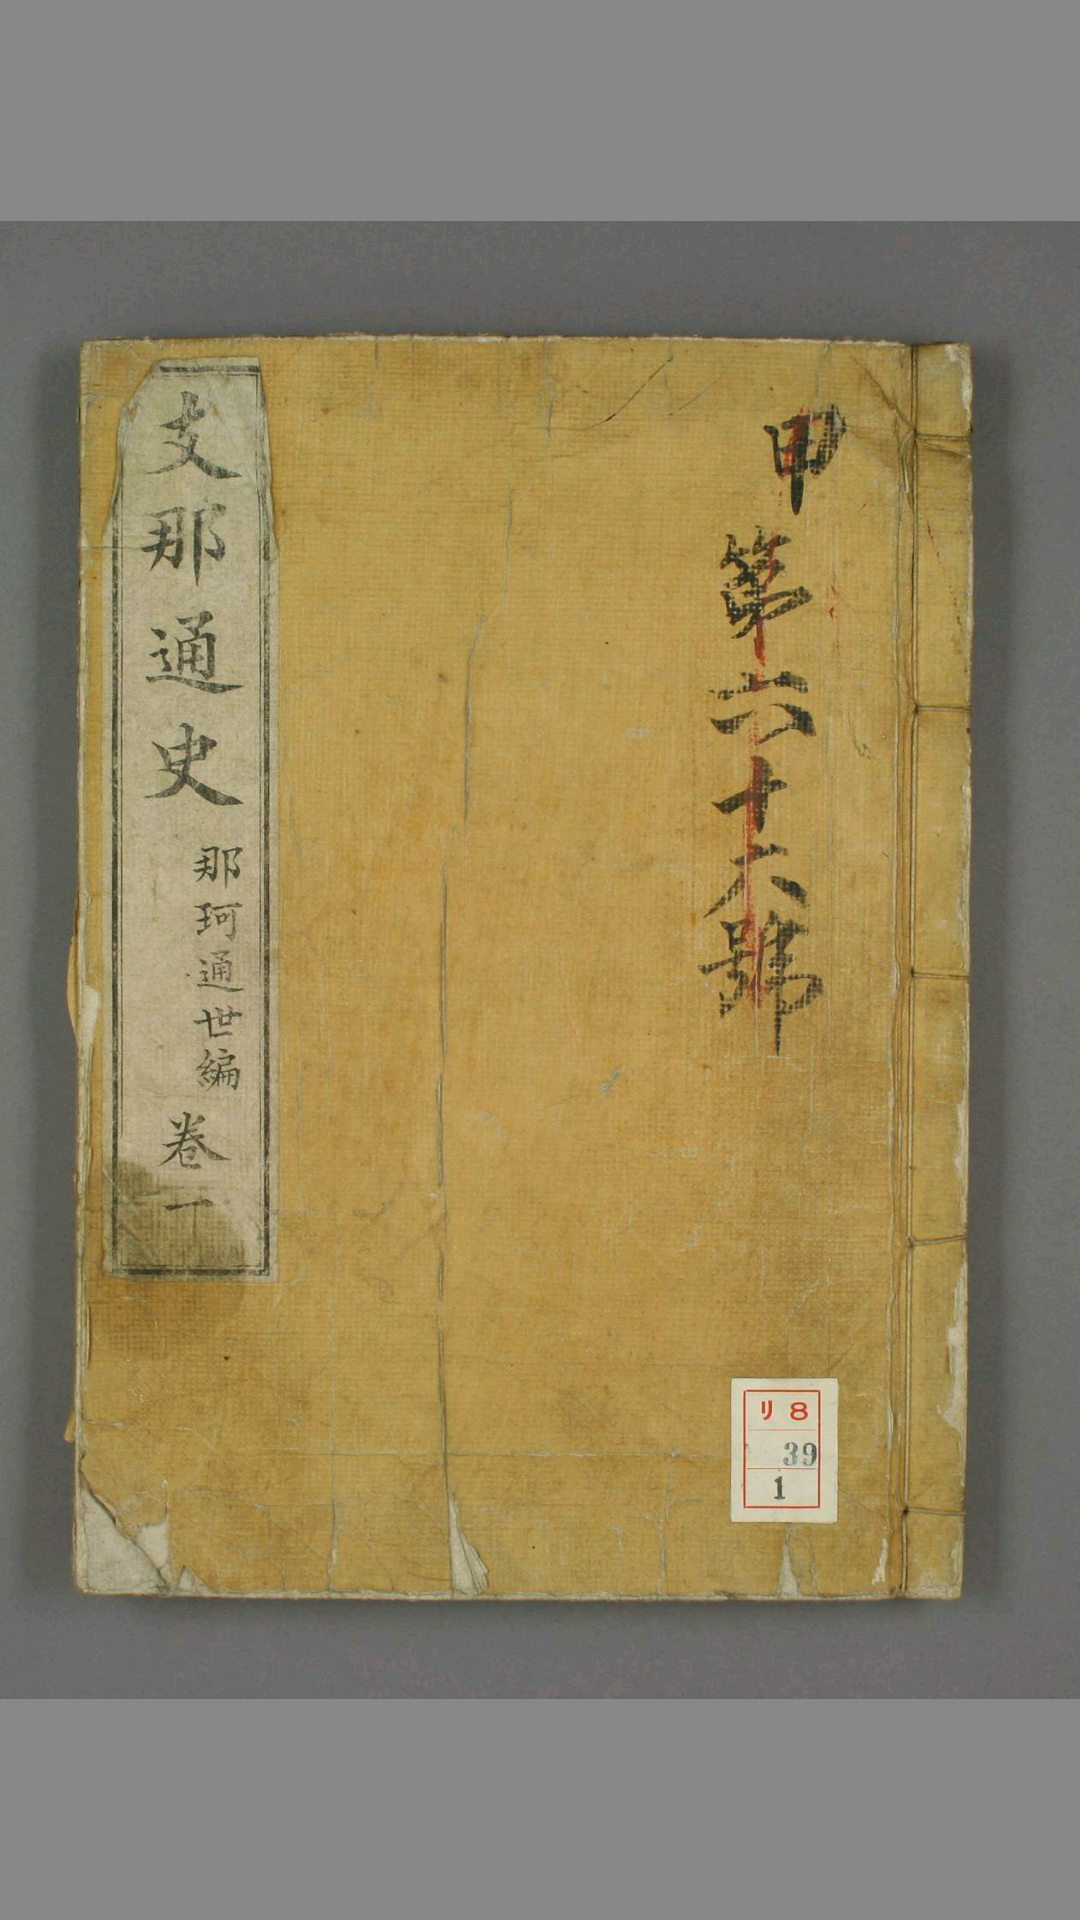 甲第六十六號
支那通史
那珂通世編
卷一
リ 8
39
1